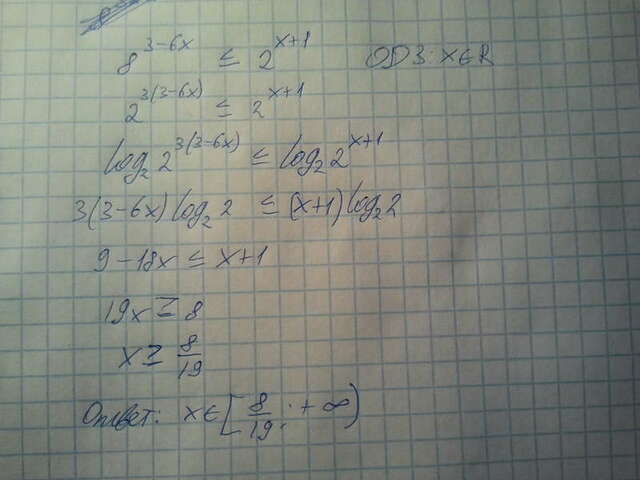 8^{3-6x} ≤ 2^{x+1} ОДЗ: x∈R
2^{3(3-6x)} ≤ 2^{x+1}
log₂ 2^{3(3-6x)} ≤ log₂ 2^{x+1}
3(3-6x) log₂ 2 ≤ (x+1) log₂ 2
9-18x ≤ x+1
19x ≥ 8
x ≥ 8/19
Ответ: x∈[8/19; +∞)